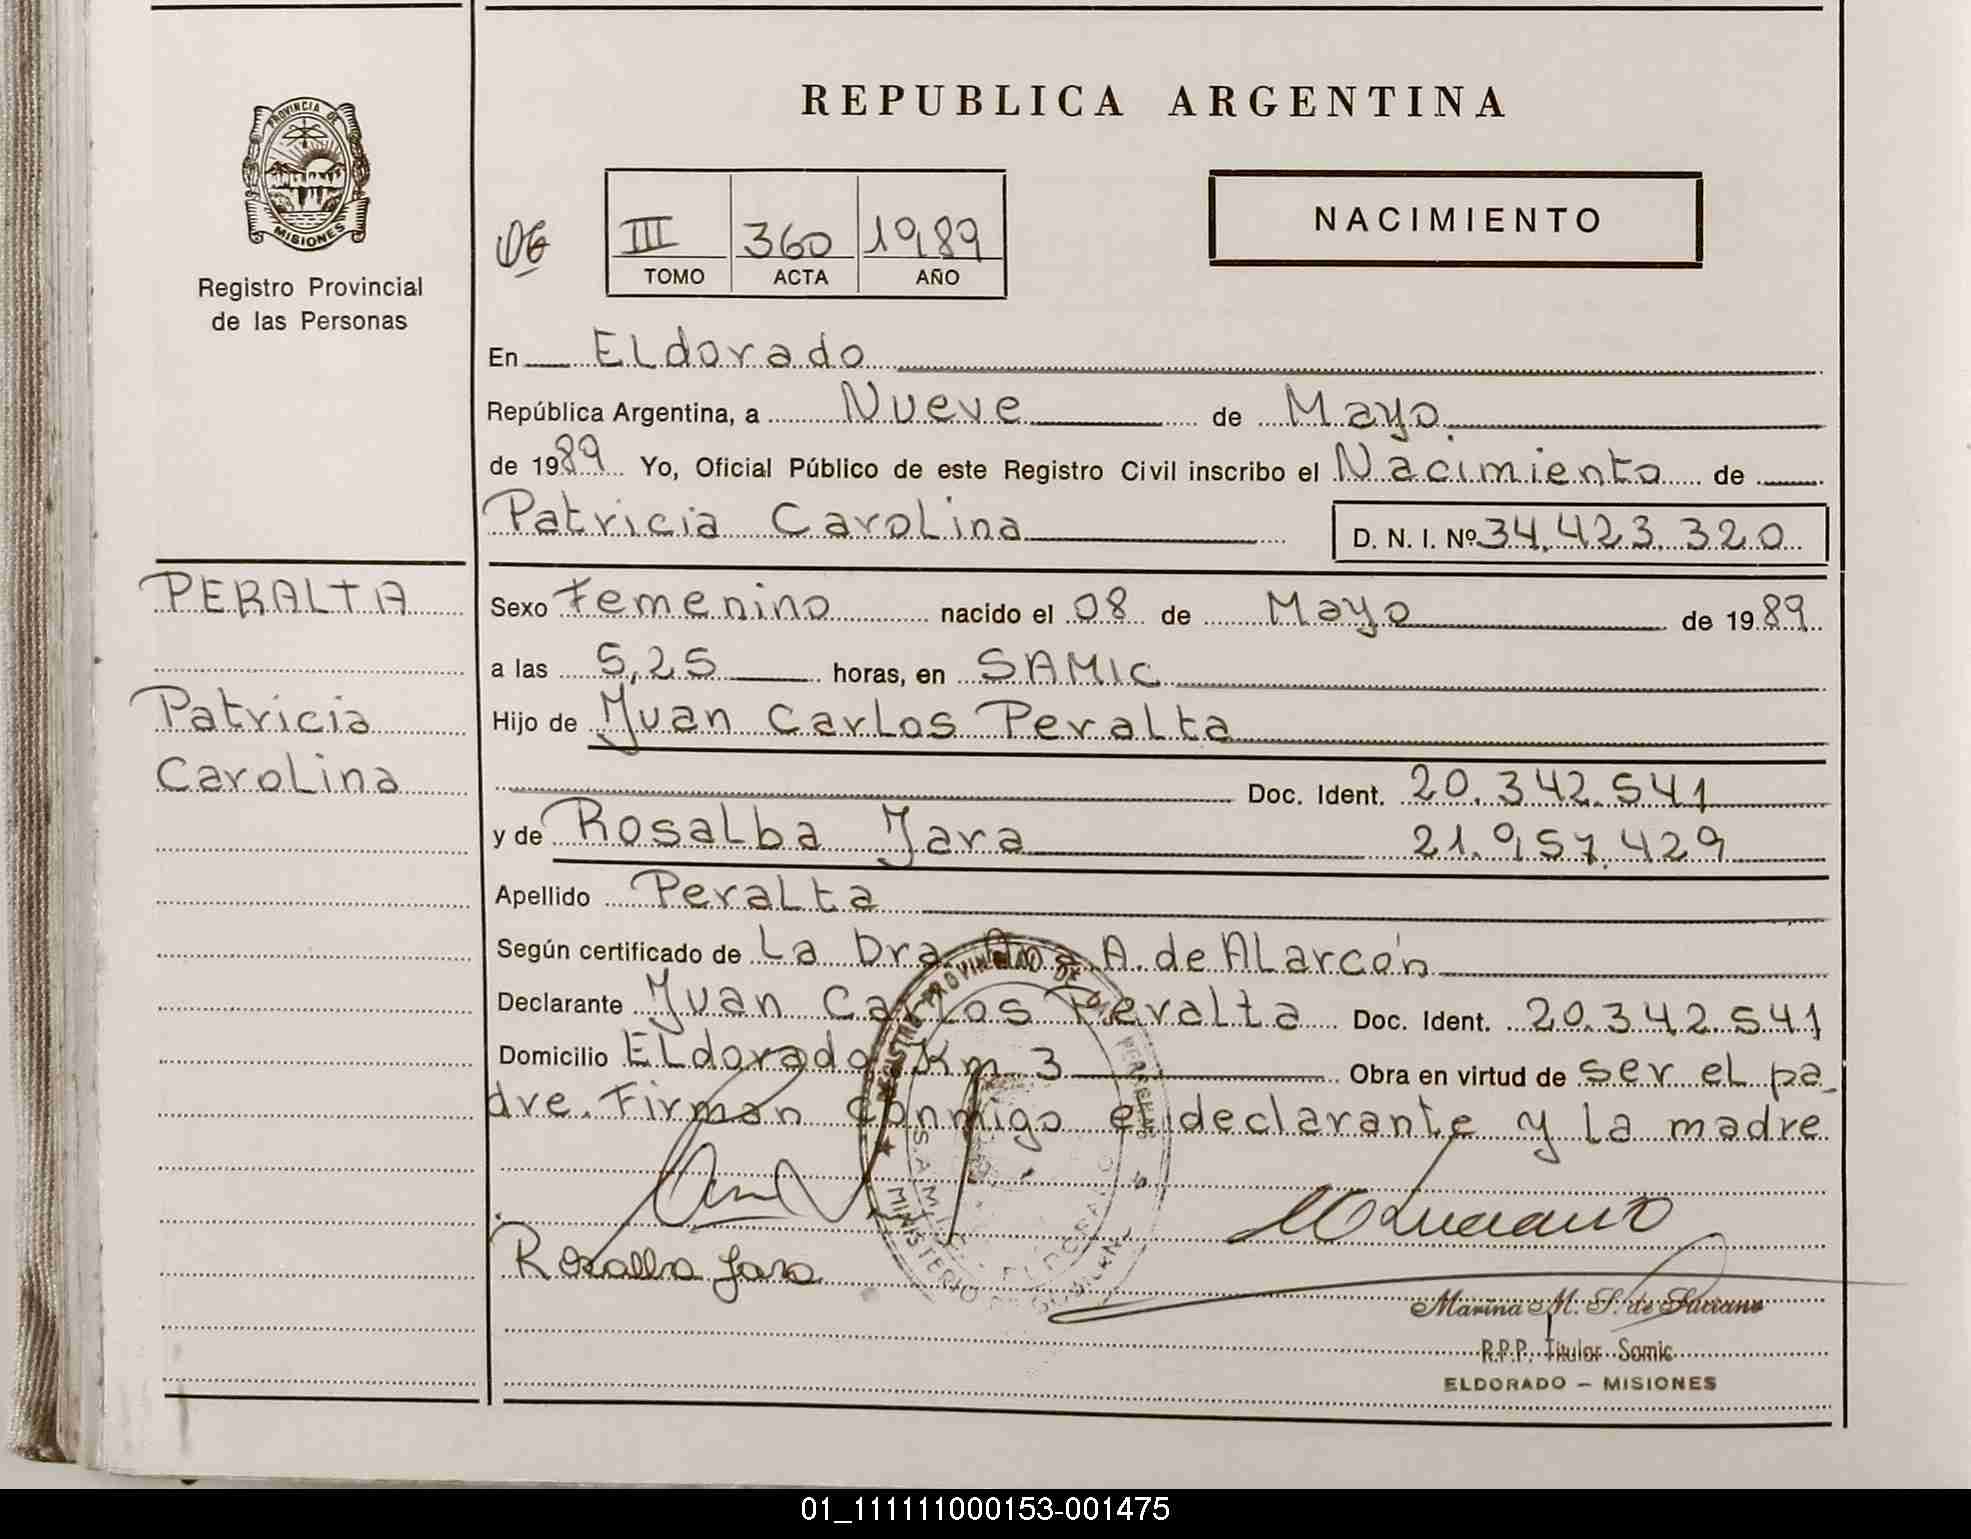 REPUBLICA ARGENTINA
PROVINCIA DE
MISIONES
Registro Provincial
de las Personas
III 360 1989
TOMO ACTA AÑO
NACIMIENTO
En Eldorado
República Argentina, a Nueve de Mayo
de 1989 Yo, Oficial Público de este Registro Civil inscribo el Nacimiento de
Patricia Carolina D. N. I. Nº 34.423.320
PERALTA
Patricia
Carolina
Sexo Femenino nacido el 08 de Mayo de 1989
a las 5,25 horas, en SAMIC
Hijo de Juan Carlos Peralta
Doc. Ident. 20.342.541
y de Rosalba Jara 21.957.429
Apellido Peralta
Según certificado de La Dra. Ana A. de Alarcón
Declarante Juan Carlos Peralta Doc. Ident. 20.342.541
Domicilio Eldorado Km 3 Obra en virtud de ser el pa-
dre. Firman conmigo el declarante y la madre
Rosalba Jara
Marina M. S. de Luciano
R.P.P. Titular Samic
ELDORADO - MISIONES
01_111111000153-001475